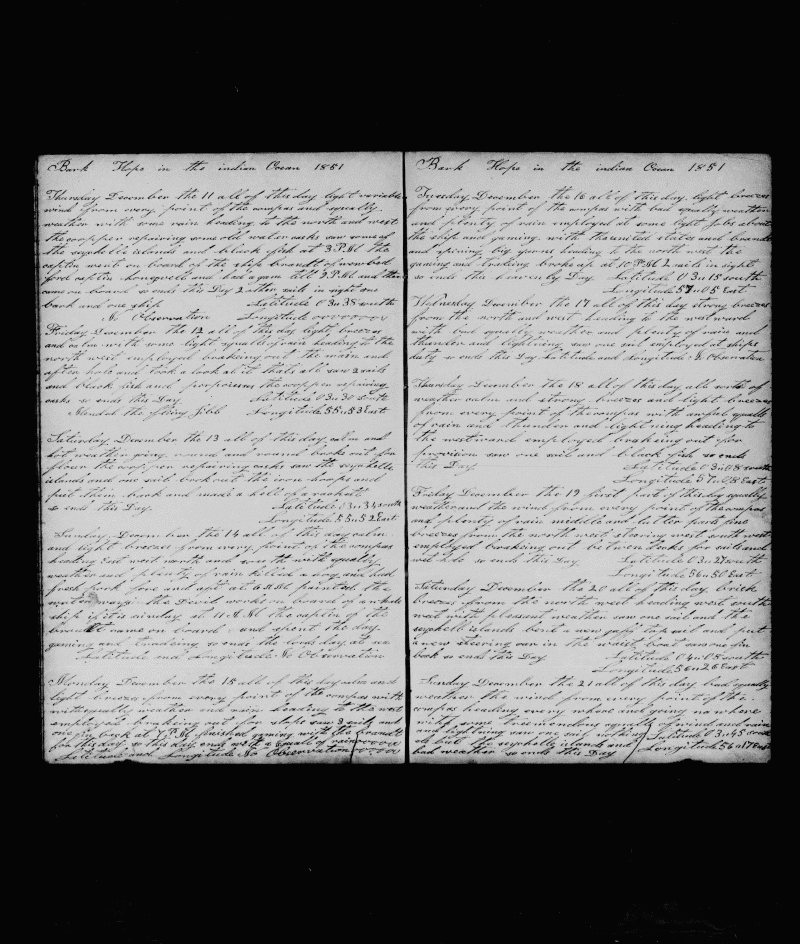 Bark Hope in the indian Ocean 1851
Thursday December the 11 all of this day light variable
wind from every point of the compas and squally
weather with some rain heading to the north and west
the coopper repairing some old water casks saw some of
the seychelle islands and black fish at 3 P.M the
captin went on board of the ship brandt of new bed
ford captin and had a gam till 9 P.M and then
came on board so ends this Day 2 other sails in sight one
bark and one ship Latitude 03 " 38 south
No Observation Longitude 00000000
Friday December the 12 all of this day light breezes
and calm with some light squalls of rain heading to the
north west employed brakeing out the main and
after hole and took a look at it thats all saw 2 sails
and black fish and porpoises the coopper repairing
casks so ends this Day Latitude 03 " 30 south
Mended the flying Jibb Longitude 55 " 53 East
Saturday December the 13 all of this day calm and
hot weather going round and round broke out for
flour the coopper repairing casks saw the seychelle
islands and one sail brok out the iron hoops and
put them back and made a hell of a rackett
so ends this Day. Latitude 03 " 34 south
Longitude 55 " 52 East
Sunday December the 14 all of this day calm
and light breezes from every point of the compas
heading East west north and south with squally
weather and plenty of rain killed a hog and had
fresh pork fore and aft at 6 A.M painted the
water ways the Devil works on board of a whale
ship if it is sunday at 11 A.M the captin of the
brandt came on board and spent the day
gaming and tradeing so ends the lords day at sea
Latitude and Longitude No Observation
Monday December the 15 all of this day calm and
light breezes from every point of the compas with
with squally weather and rain heading to the west
employed brakeing out for slops saw 3 sails and
one fin back at 7 P.M finished gaming with the brandt
for this day so this day ends with a squall of rain
Latitude and Longitude No Observation
Bark Hope in the indian Ocean 1851
Tuesday December the 16 all of this day light breezes
from every point of the compas with bad squaly weather
and plenty of rain employed at some light Jobs about
the ship and gaming with the united states and brandt
and spining big yarns heading to the north west the
gaming and tradeing broke up at 10 P.M 2 sails in sight
so ends this heavenly Day Latitude 03 " 15 south
Longitude 57 " 05 East
Wednesday December the 17 all of this day strong breezes
from the north and west heading to the westward
with bad squally weather and plenty of rain and
thunder and lightning saw one sail employed at ships
duty so ends this Day Latitude and Longitude No Observation
Thursday December the 18 all of this day all sorts of
weather calm and strong breezes and light breezes
from every point of the compas with awful squalls
of rain and thunder and lightning heading to
the westward employed brakeing out for
provision saw one sail and black fish so ends
this Day Latitude 03 " 08 south
Longitude 57 " 08 East
Friday December the 19 first part of this day squally
weather and the wind from every point of the compas
and plenty of rain middle and latter parts fine
breezes from the north west staring west south west
employed brakeing out between decks for sails and
so ends this Day Latitude 03 " 27 south
Longitude 56 " 50 East
Saturday December the 20 all of this day brick
breezes from the north west heading west south
west with pleasant weather saw one sail and the
seychelle islands bend a new top sail and put
a new steering oar in the waist boat saw one fin
back so ends this Day Latitude 04 " 08 south
Longitude 56 " 26 East
Sunday December the 21 all of this day bad squally
weather the wind from every point of the
compas heading every whare and going no whare
with some tremendous squalls of wind and rain
and lightning saw one sail nothing Latitude 03 " 45 south
els but the seychelle islands and Longitude 56 " 17 East
bad weather so ends this Day